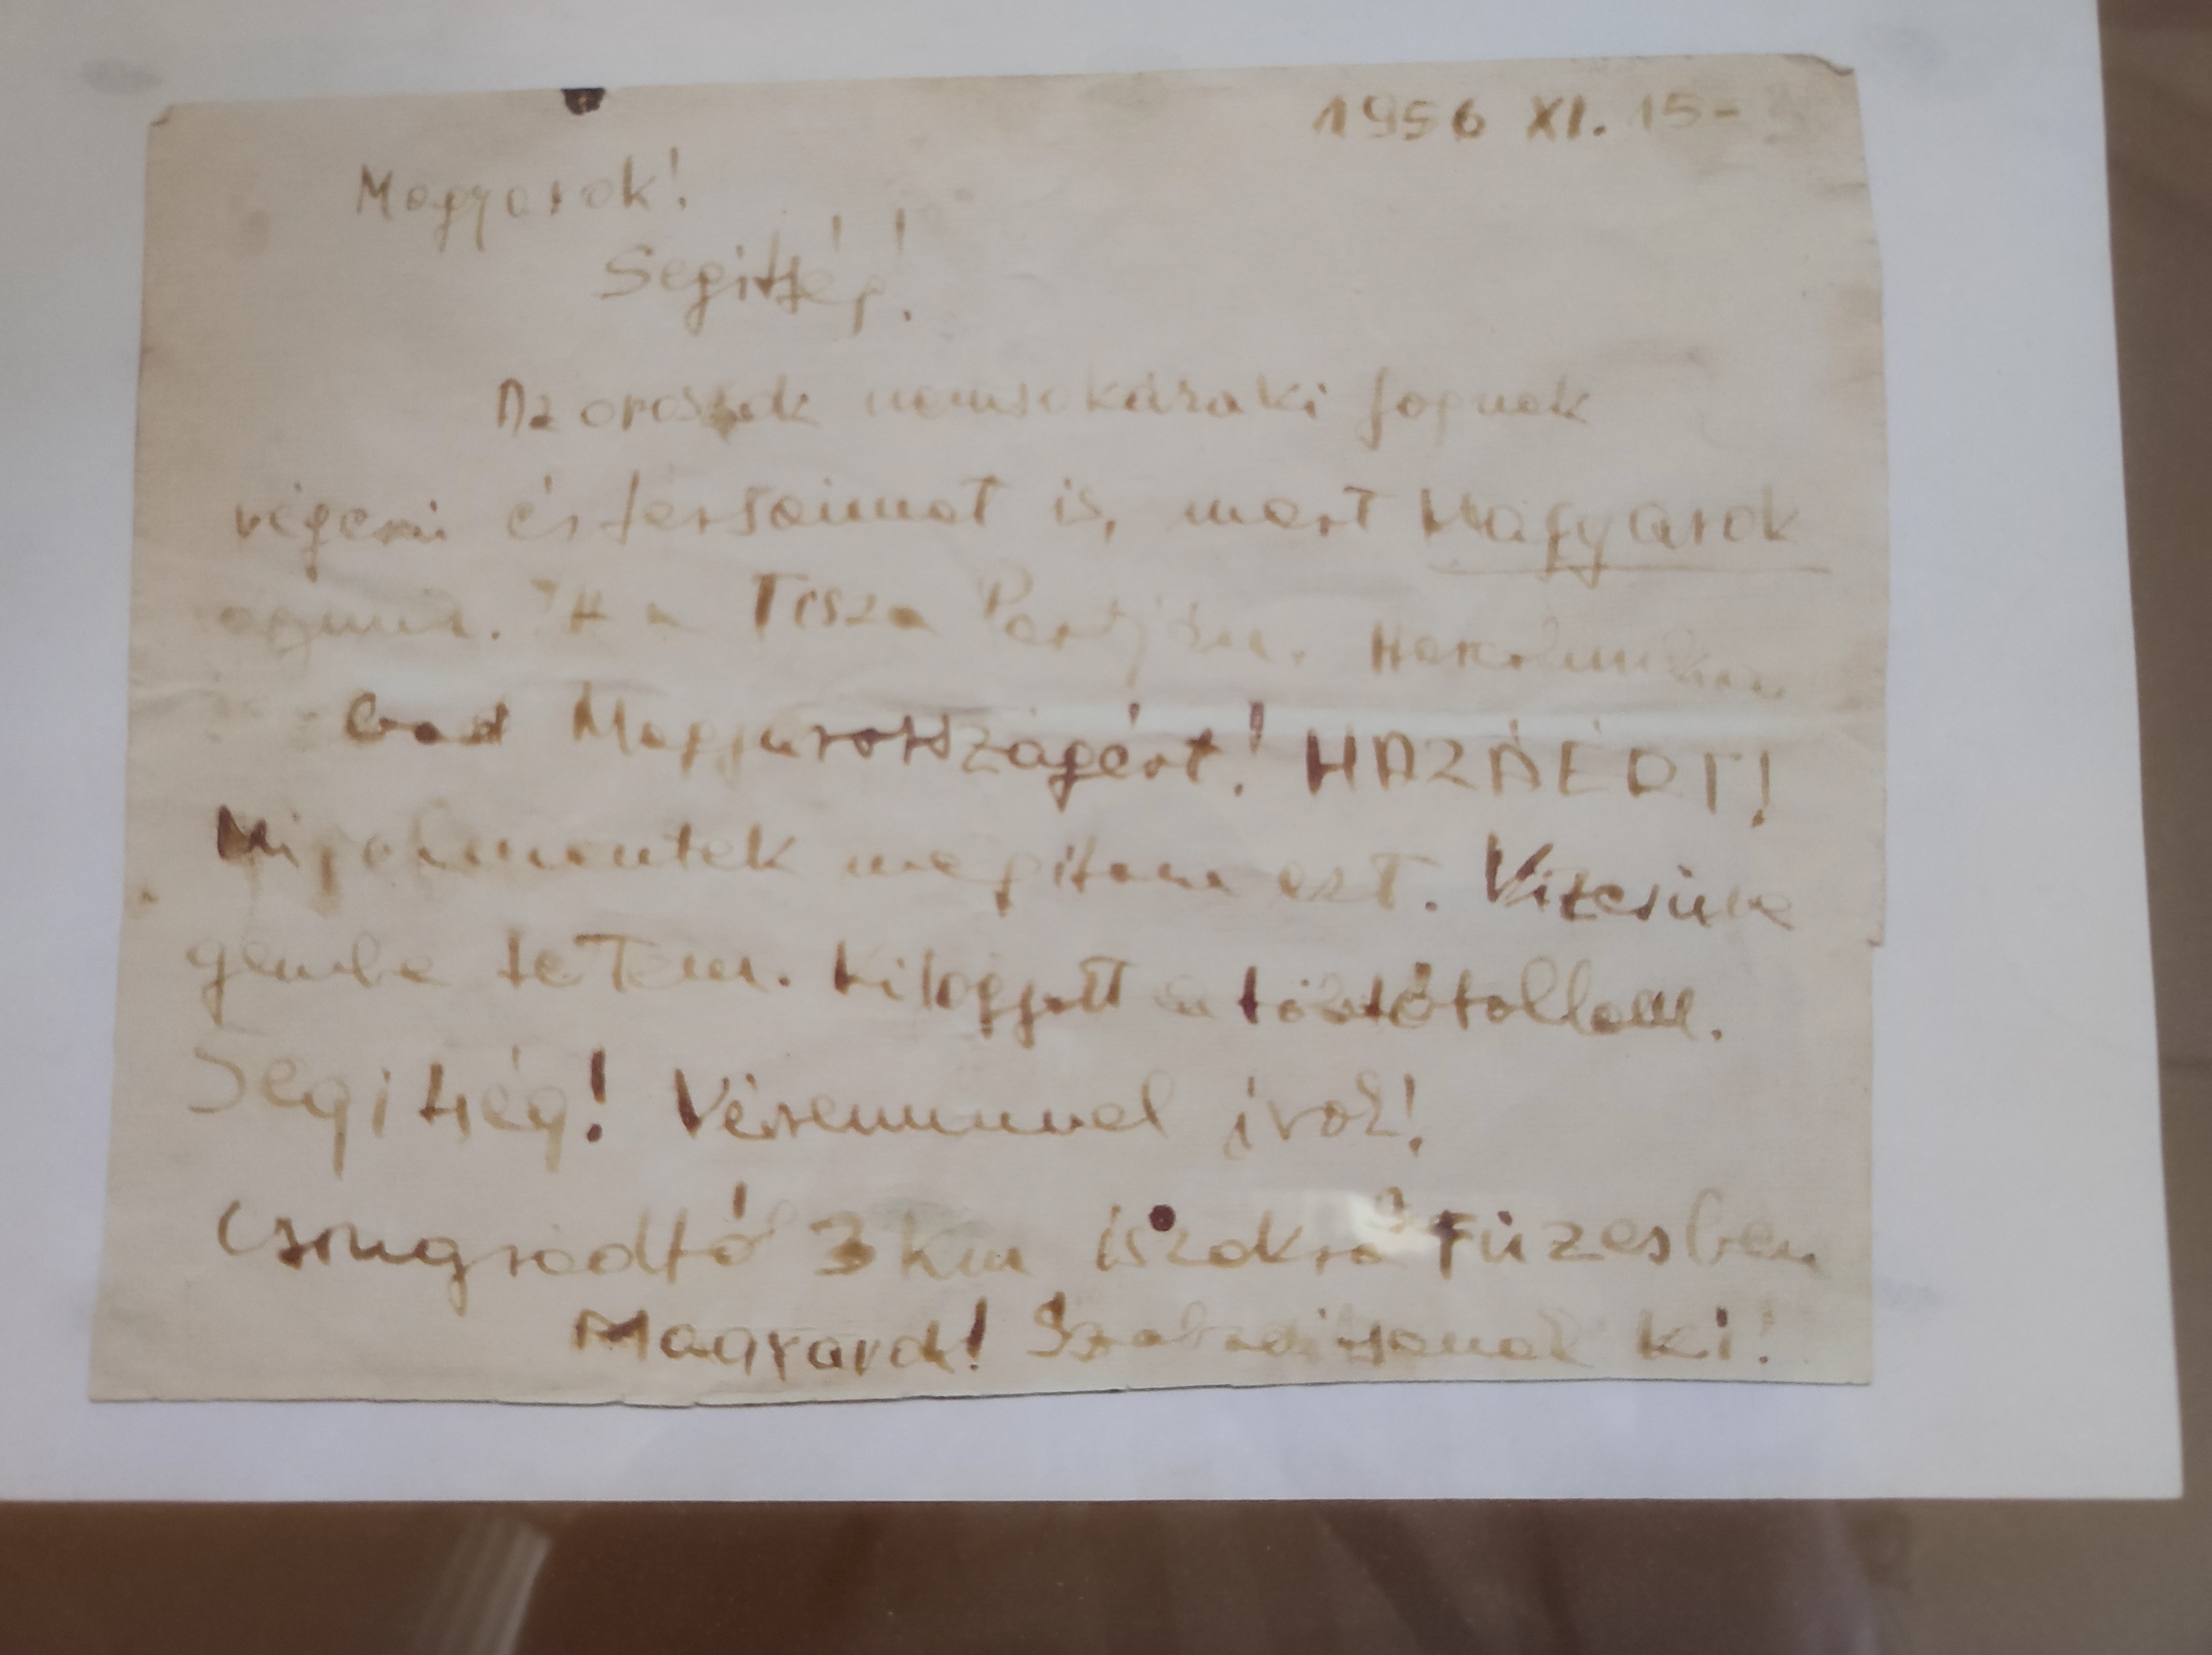 1956 XI. 15-
Magyarok!
Segitség!
Az oroszok nemsokára ki fognak
végezni és társaimat is, mert Magyarok
vagyunk. Itt a Tisza Partján. Meghalunk
Magyarországért! HAZÁÉRT!
Mig elmentek megirtam ezt. Vizesüve
gembe tetem. Kifogyott a töltőtollam.
Segitség! Véremmel irok!
Csongrádtó 3 km iszakra Füzesben
Magyarok! Szabaditsanak ki!